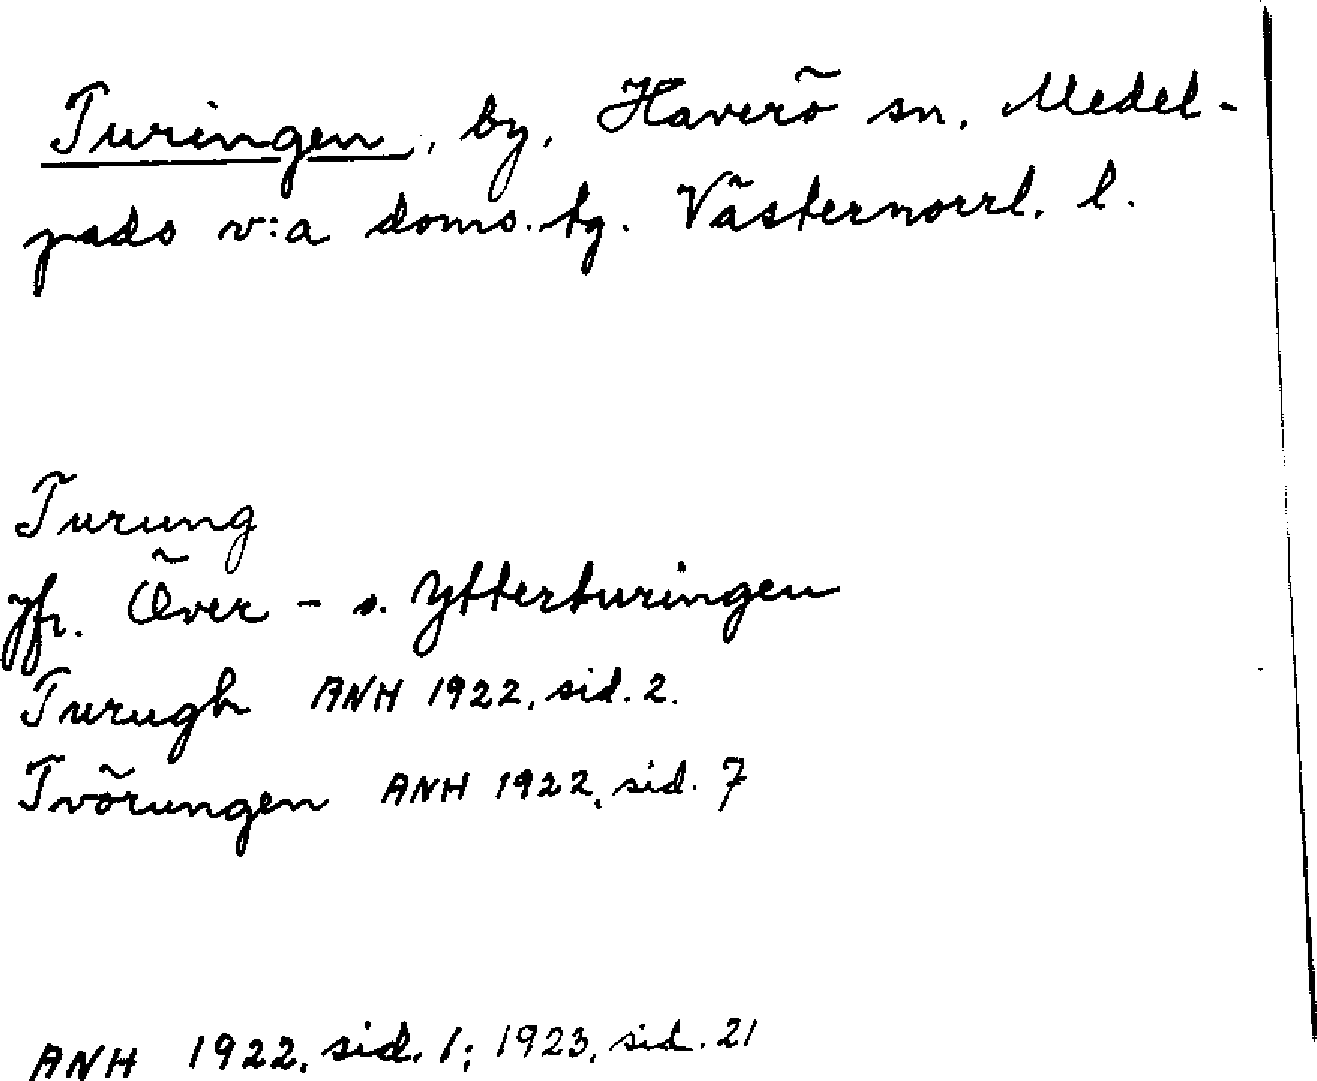 Turingen, by, Haverö sn, Medel-
pads v:a doms. tg. Västernorrl. l.
Turung
Jfr. Över- o. Ytterturingen
Turugh ANH 1922, sid. 2.
Tvörungen ANH 1922, sid. 7
ANH 1922, sid. 1; 1923, sid. 21